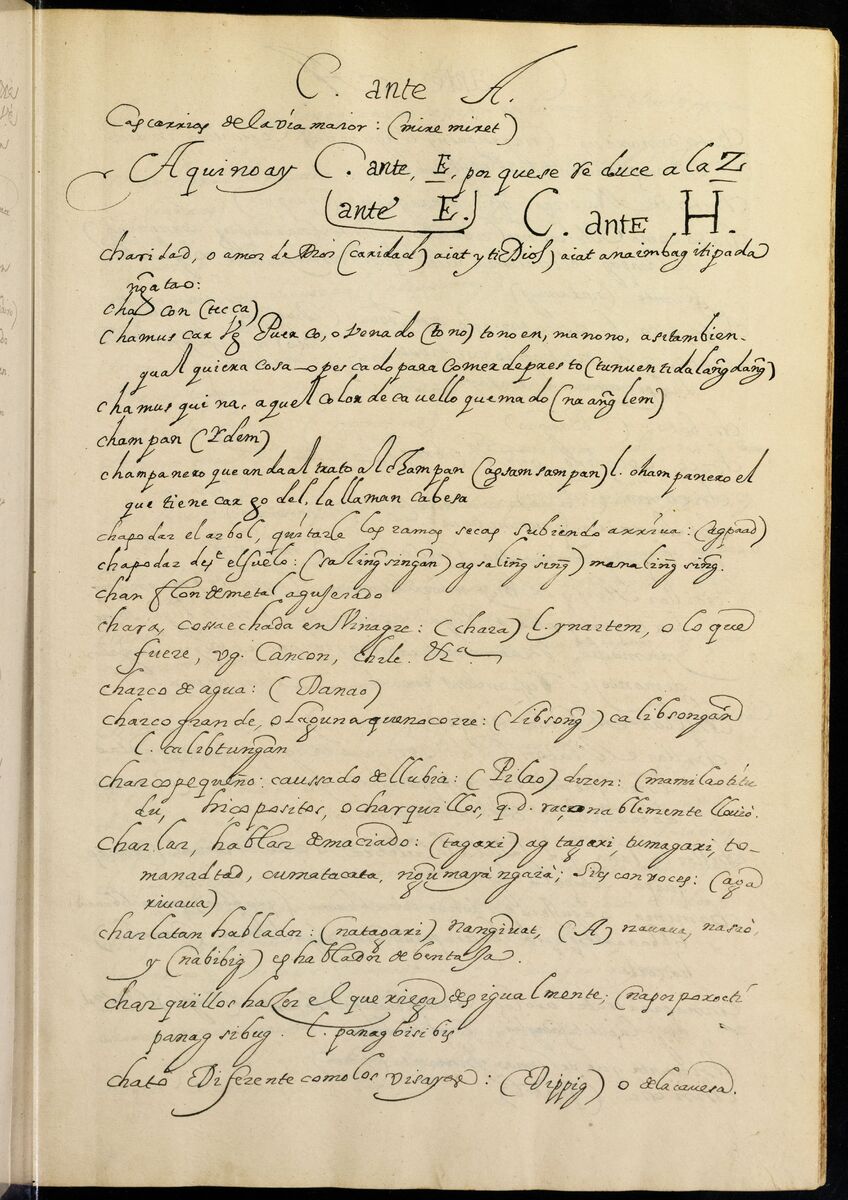 C. ante A.
Cascarrias de la via maior: (mire miret)
Aqui no ay C. ante, E, por que se reduce a la Z
(ante E.) C. ante H.
charidad, o amor de Dios (caridad) aiat y ti Dios) aiat a naimbag iti pada
ngatao:
cha con (tecca)
chamuscar Puerco, o Venado (tono) tonoen, manono, asi tambien
qual quiera cosa o pescado para comer de presto (tunuen ti dalang dang)
chamusquina, aquel color de cavello quemado (na anglem)
champan (Ydem)
champanero que anda al trato al champan (agsamsampan) l. champanero el
que tiene cargo del, la llaman cabesa
chapodar el arbol, quitarle los ramos secas subiendo arriva: (agpaad)
chapodar dese el suelo: (salingsingan) agsaling sing) manaling sing.
chanflon de metal agujerado
chara, cossa echada en Vinagre: (chara) l. ynartem, o lo que
fuere, vg. Cancon, chile. &a.
charco de agua: (Danao)
charco grande, o laguna que no corre: (libsong) ca libsongan
l. calibtungan
charco pequeño: caussado de llubia: (Pilao) dizen: (mamilao ti tu
du, hiço positos, o charquillos, q. d. raçonablemente lluvió.
Charlar, hablar demaciado: (tagari) ag tagari, tumagari, to-
manadtad, cumatacata, ngumayangaia; Si es con voces: (aga
rivava)
charlatan hablador: (natagari) nangivat, (A) navava, nasiò,
y (nabibig) es hablador de bentaja.
charquillos hazer el que riega desigualmente; (nasporporocti
panagsibug. l. panagbisibis
chato Diferente como los visayas: (Dippig) o de la cavesa.